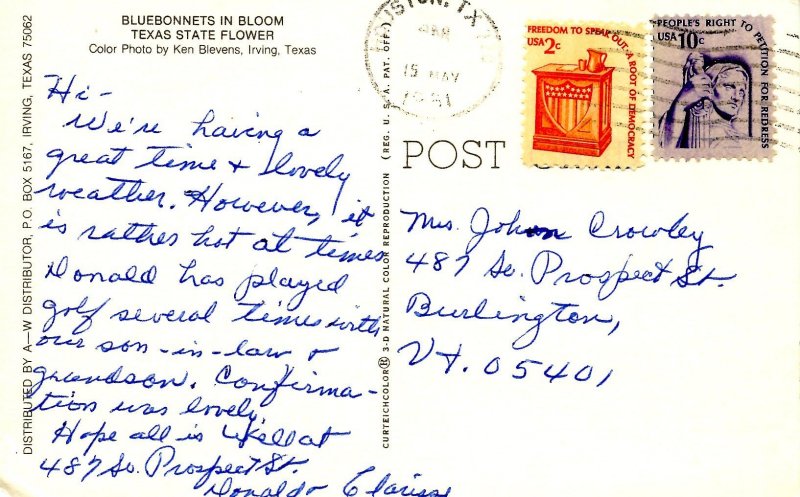 BLUEBONNETS IN BLOOM
TEXAS STATE FLOWER
Color Photo by Ken Blevens, Irving, Texas
Hi-
We're having a
great time & lovely
weather. However, it
is rather hot at times
Donald has played
golf several times with
our son-in-law &
grandson. Confirma-
tion was lovely.
Hope all is well at
487 So. Prospect St.
Donald & Clarisse
DISTRIBUTED BY A—W DISTRIBUTOR, P.O. BOX 5167, IRVING, TEXAS 75062
CURTEICHCOLOR® 3-D NATURAL COLOR REPRODUCTION (REG. U. S. A. PAT. OFF.)
HOUSTON, TX
15 MAY
1981
FREEDOM TO SPEAK OUT-A ROOT OF DEMOCRACY
USA 2c
PEOPLE'S RIGHT TO PETITION FOR REDRESS
USA 10c
POST
Mrs. John Crowley
487 So. Prospect St.
Burlington,
Vt. 05401